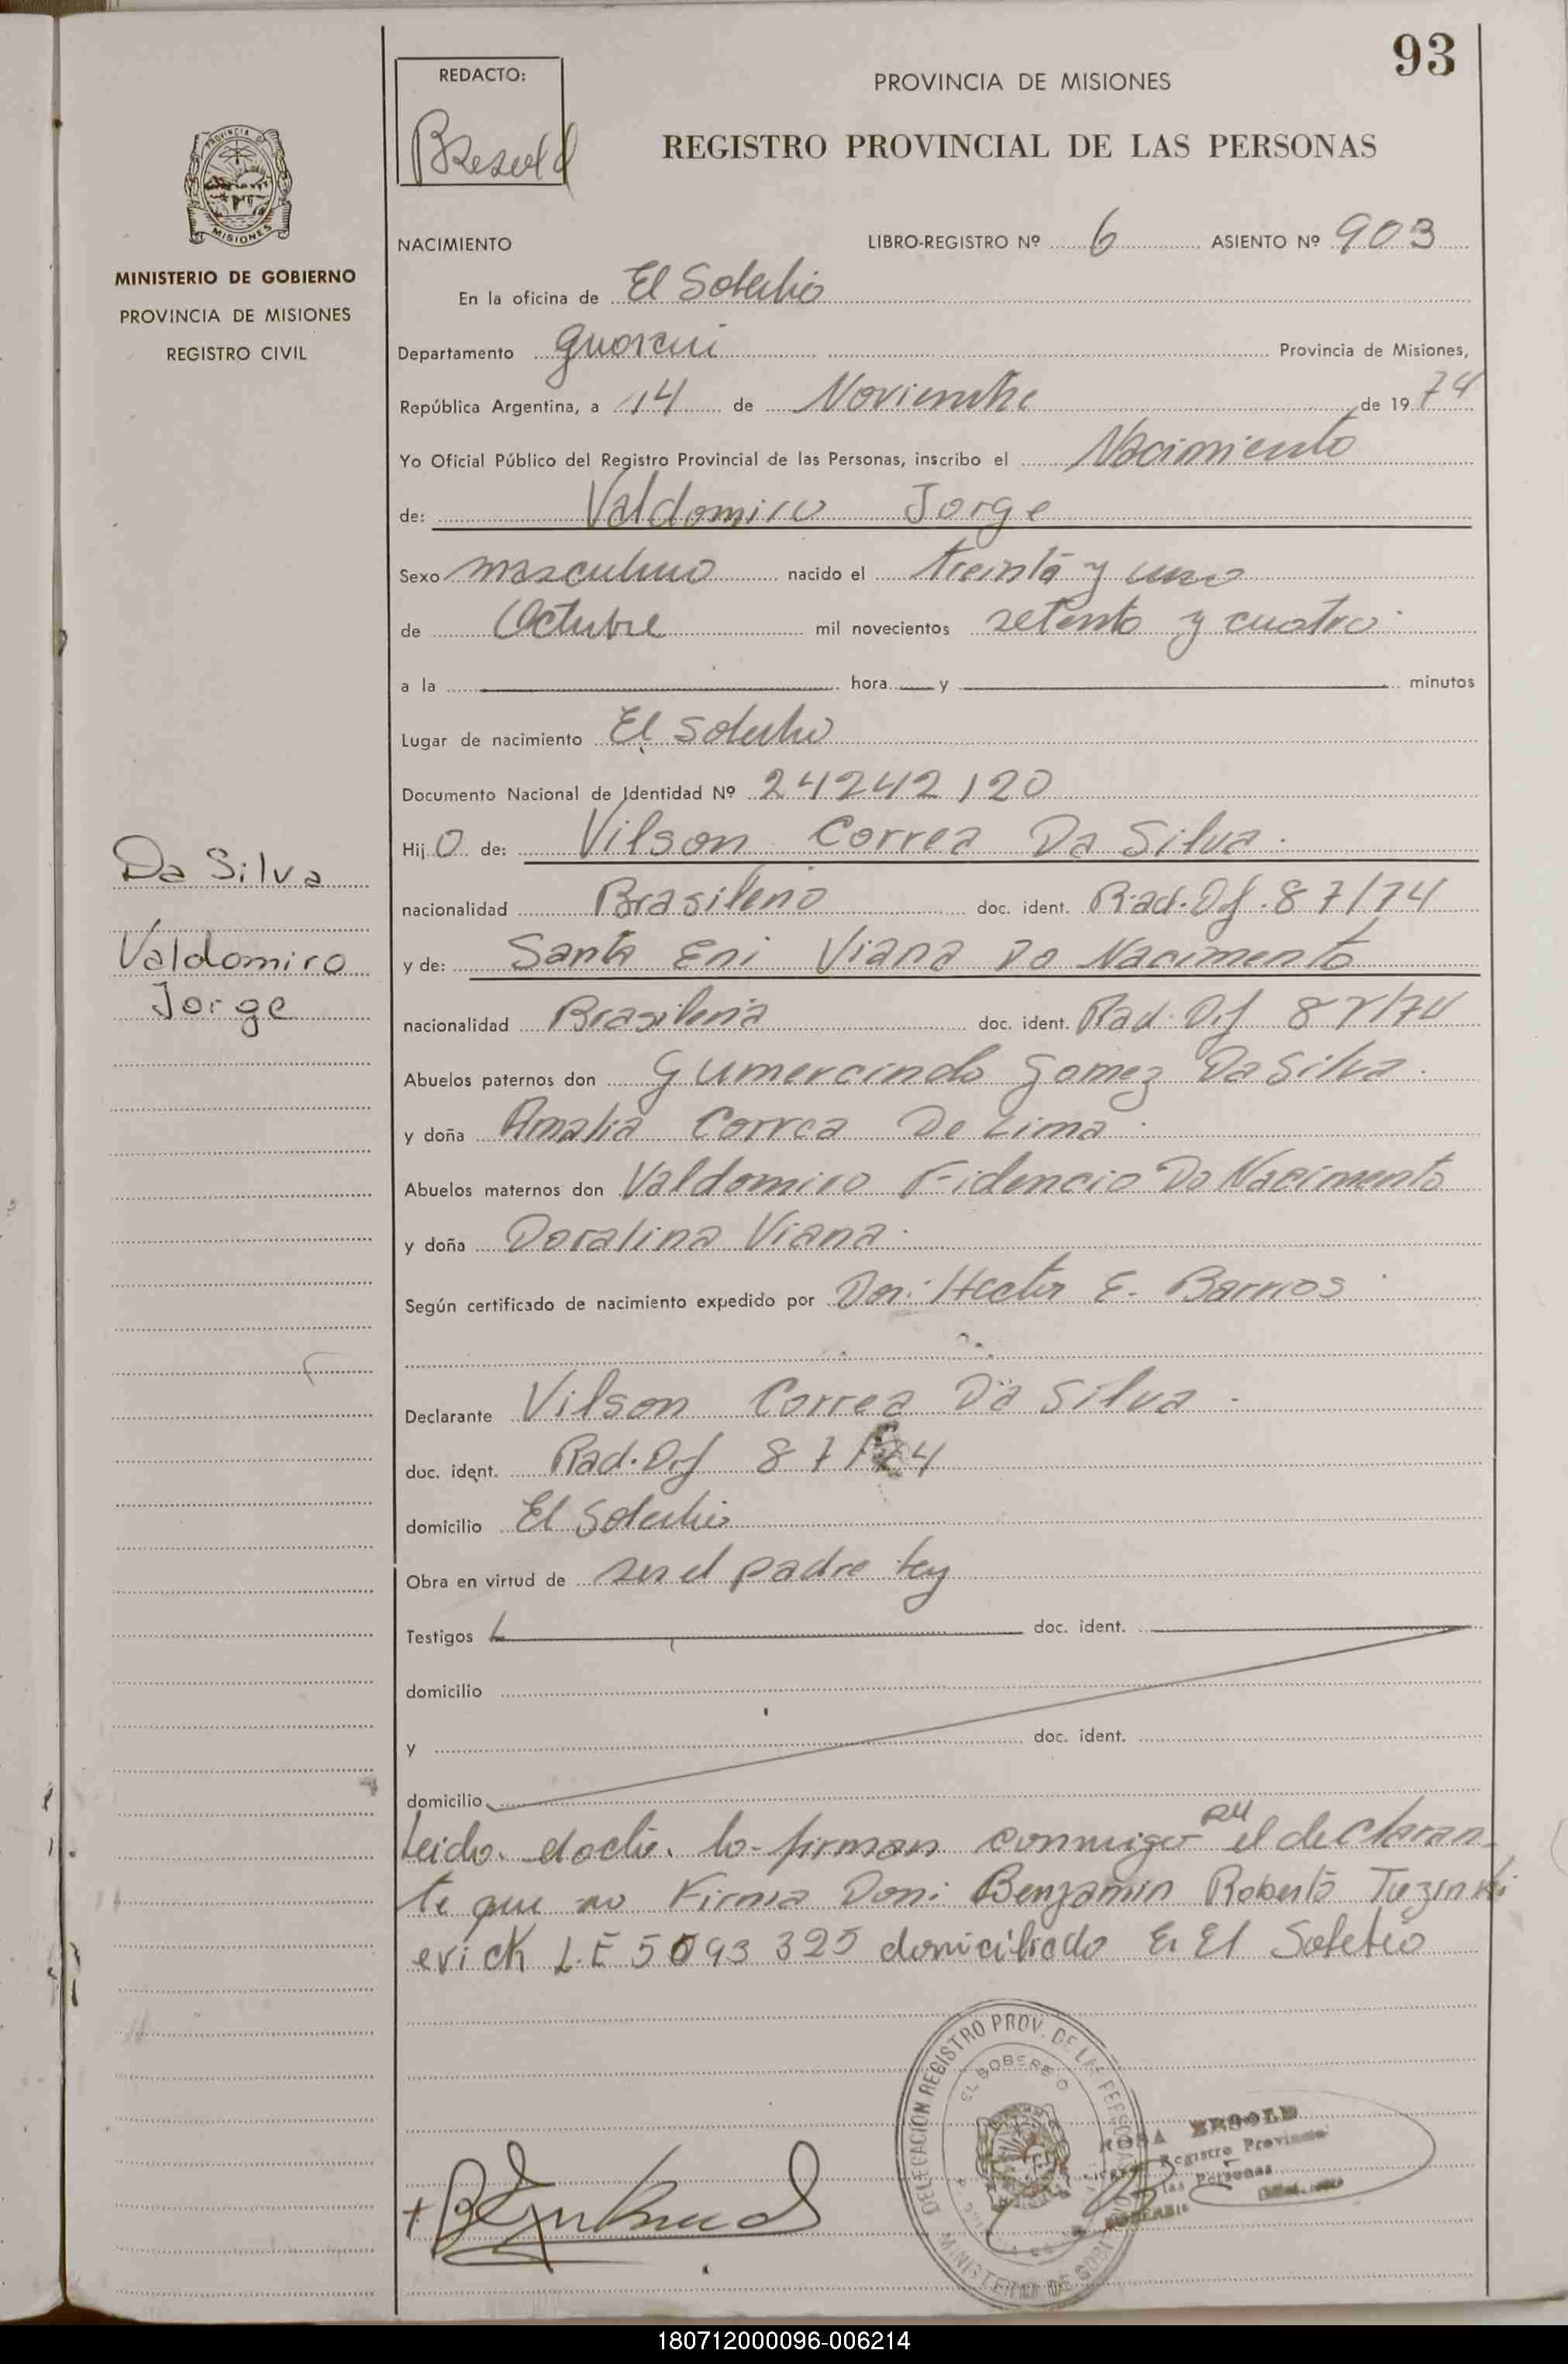 93
REDACTO:
PROVINCIA DE MISIONES
REGISTRO PROVINCIAL DE LAS PERSONAS
PROVINCIA DE
MISIONES
MINISTERIO DE GOBIERNO
PROVINCIA DE MISIONES
REGISTRO CIVIL
NACIMIENTO LIBRO-REGISTRO Nº 6 ASIENTO Nº 903
En la oficina de El Soberbio
Departamento Guarani Provincia de Misiones,
República Argentina, a 14 de Noviembre de 1974
Yo Oficial Público del Registro Provincial de las Personas, inscribo el Nacimiento
de: Valdomiro Jorge
Sexo masculino nacido el treinta y uno
de Octubre mil novecientos setenta y cuatro
a la hora y minutos
Lugar de nacimiento El Soberbio
Documento Nacional de Identidad Nº 24242120
Hijo de: Vilson Correa Da Silva.
Da Silva
Valdomiro
Jorge
nacionalidad Brasileño doc. ident. Rad. Dif. 87/74
y de: Santa Eni Viana Do Nacimento
nacionalidad Brasileña doc. ident. Rad. Dif 87/74
Abuelos paternos don Gumercindo Gomez Da Silva.
y doña Amalia Correa De Lima.
Abuelos maternos don Valdomiro Fidencio Do Nacimento
y doña Doralina Viana.
Según certificado de nacimiento expedido por Don: Hector E. Barrios
Declarante Vilson Correa Da Silva -
doc. ident. Rad. Dif 87/74
domicilio El Soberbio
Obra en virtud de ser el padre
Testigos doc. ident.
domicilio
y doc. ident.
domicilio
Leido el acta lo firman conmigo por el declaran-
te que no Firma Don: Benjamin Roberto
L.E 5093325 domiciliado En El Soberbio
DELEGACION REGISTRO PROV. DE LAS PERSONAS
EL SOBERBIO
MINISTERIO DE GOBIERNO
ROSA
Registro Provincial
las Personas
SOBERBIO
180712000096-006214